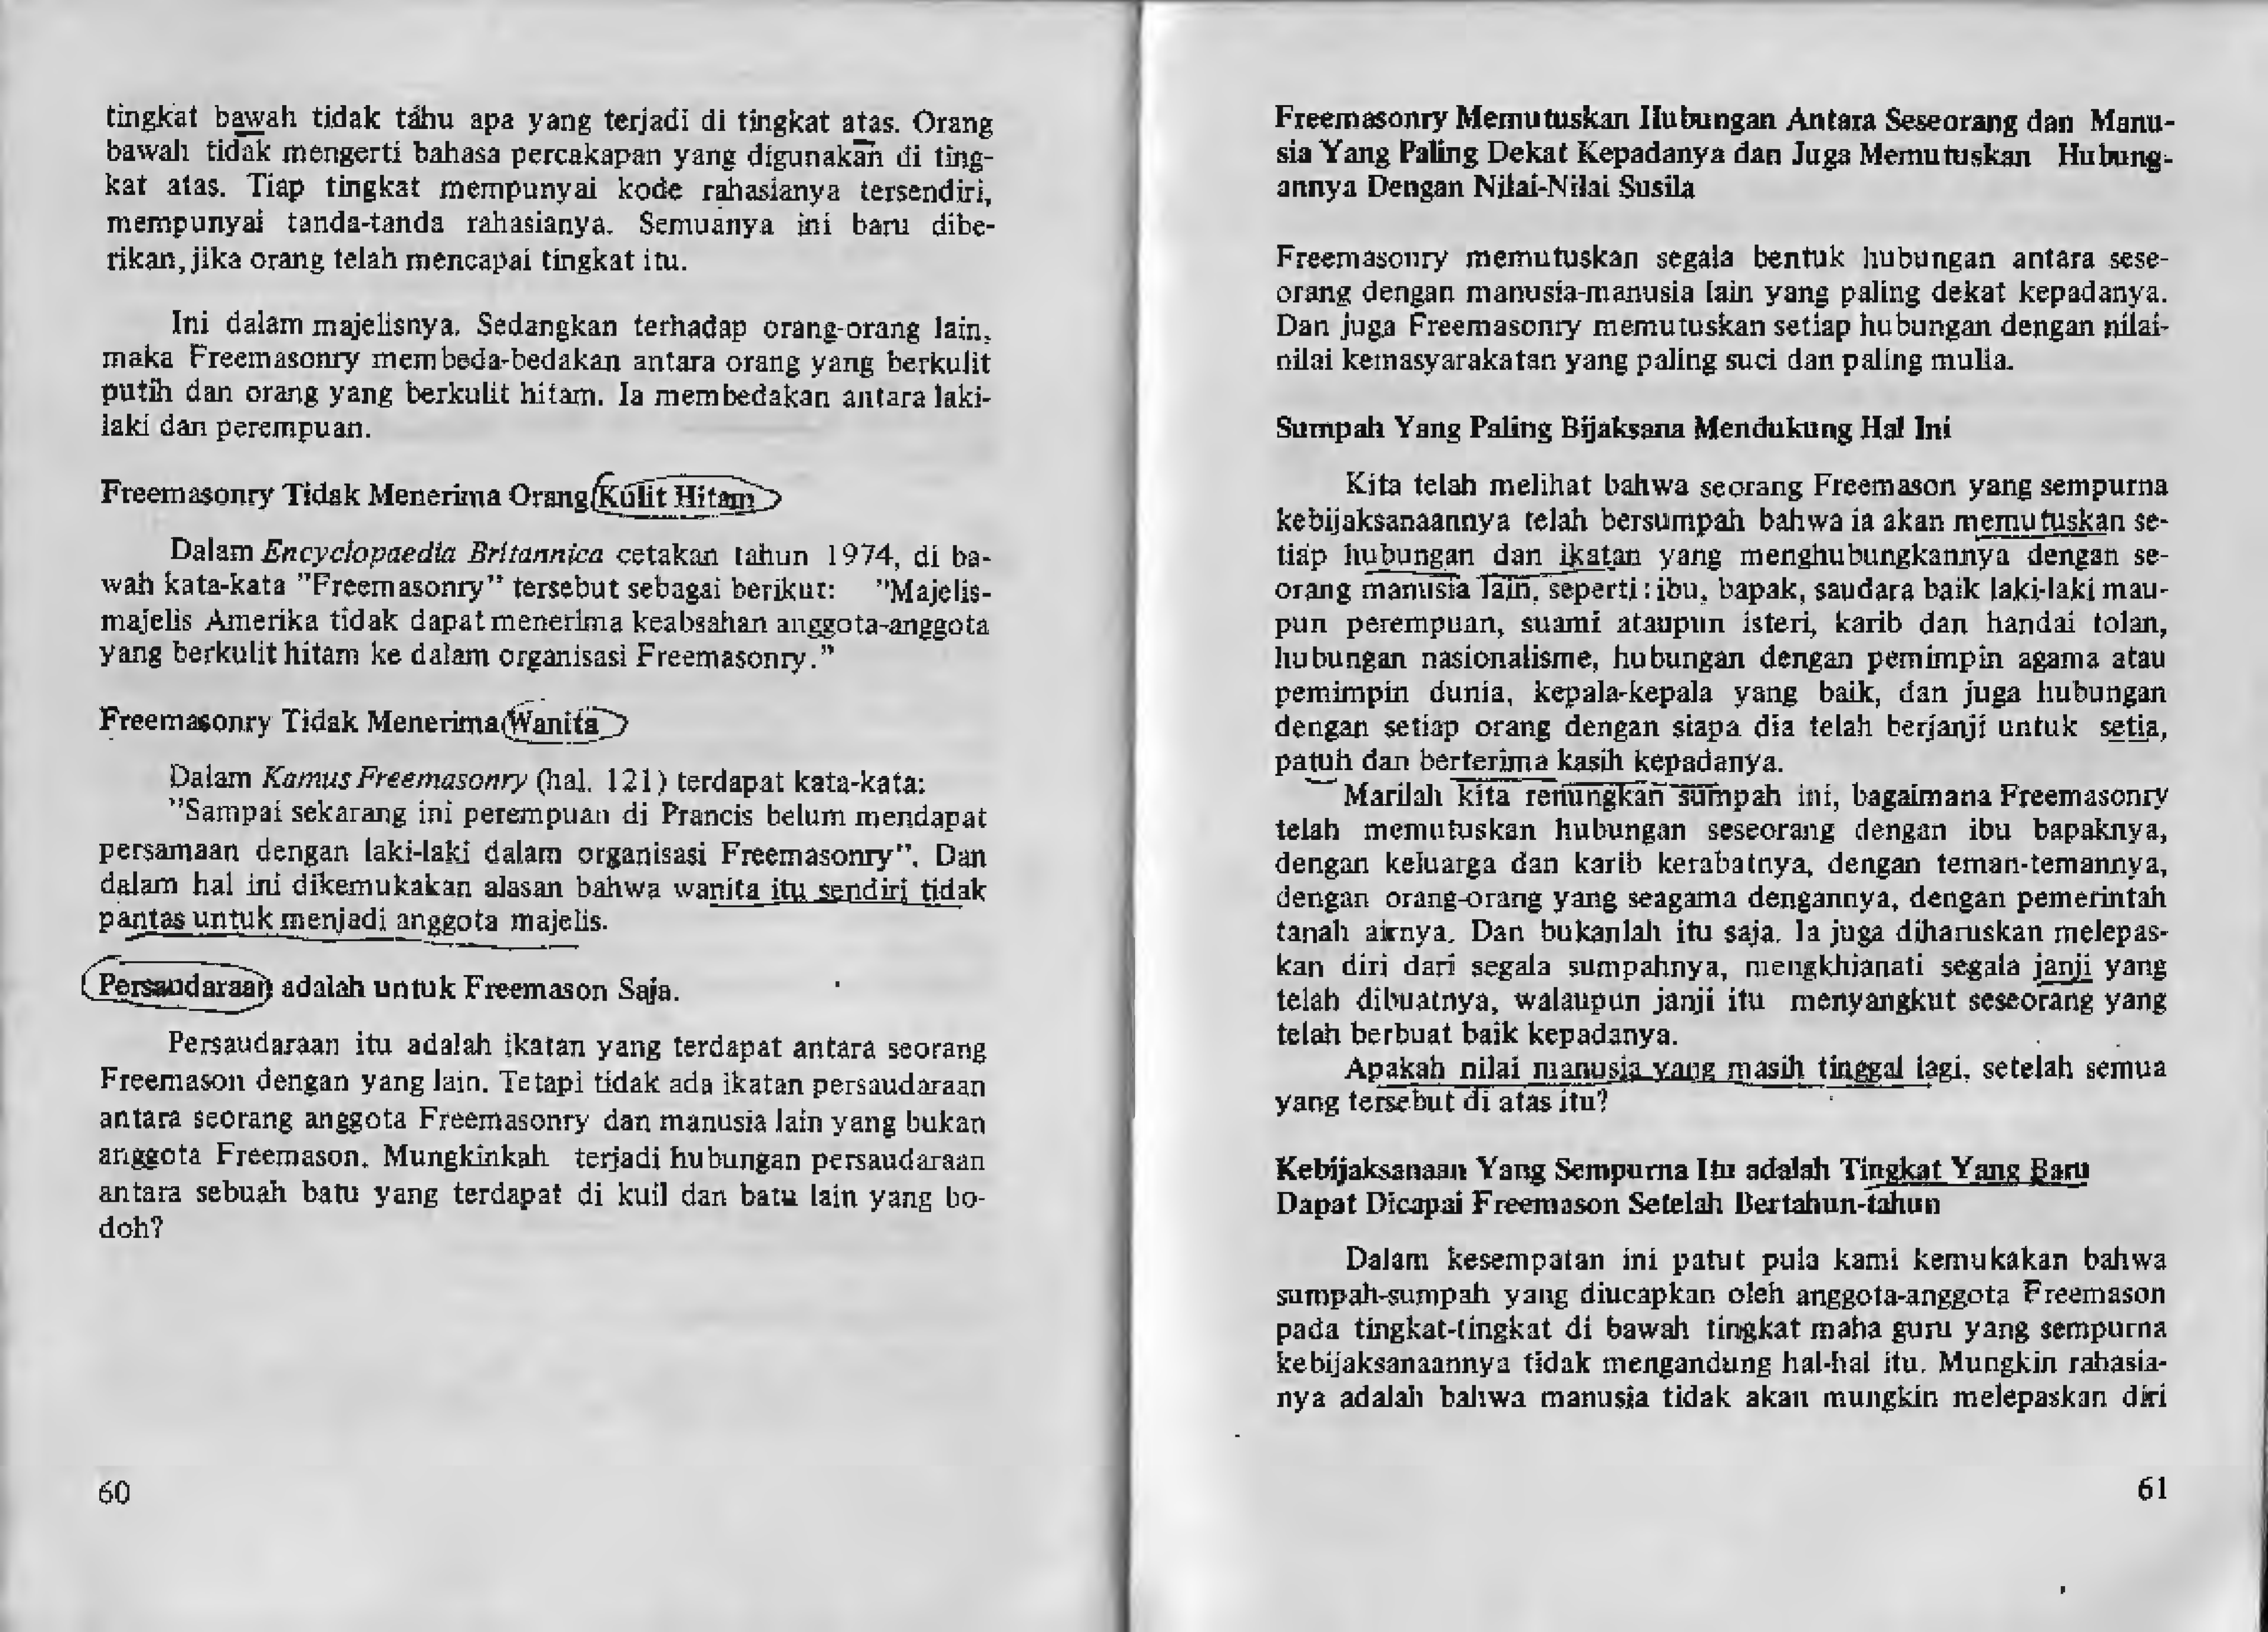 tingkat bawah tidak tahu apa yang terjadi di tingkat atas. Orang
bawah tidak mengerti bahasa percakapan yang digunakan di ting-
kat atas. Tiap tingkat mempunyai kode rahasianya tersendiri,
mempunyai tanda-tanda rahasianya. Semuanya ini baru dibe-
rikan, jika orang telah mencapai tingkat itu.
Ini dalam majelisnya. Sedangkan terhadap orang-orang lain,
maka Freemasonry membeda-bedakan antara orang yang berkulit
putih dan orang yang berkulit hitam. Ia membedakan antara laki-
laki dan perempuan.
Freemasonry Tidak Menerima Orang Kulit Hitam
Dalam Encyclopaedia Britannica cetakan tahun 1974, di ba-
wah kata-kata "Freemasonry" tersebut sebagai berikut: "Majelis-
majelis Amerika tidak dapat menerima keabsahan anggota-anggota
yang berkulit hitam ke dalam organisasi Freemasonry."
Freemasonry Tidak Menerima Wanita
Dalam Kamus Freemasonry (hal. 121) terdapat kata-kata:
"Sampai sekarang ini perempuan di Prancis belum mendapat
persamaan dengan laki-laki dalam organisasi Freemasonry". Dan
dalam hal ini dikemukakan alasan bahwa wanita itu sendiri tidak
pantas untuk menjadi anggota majelis.
Persaudaraan adalah untuk Freemason Saja.
Persaudaraan itu adalah ikatan yang terdapat antara seorang
Freemason dengan yang lain. Tetapi tidak ada ikatan persaudaraan
antara seorang anggota Freemasonry dan manusia lain yang bukan
anggota Freemason. Mungkinkah terjadi hubungan persaudaraan
antara sebuah batu yang terdapat di kuil dan batu lain yang bo-
doh?
60
Freemasonry Memutuskan Hubungan Antara Seseorang dan Manu-
sia Yang Paling Dekat Kepadanya dan Juga Memutuskan Hubung-
annya Dengan Nilai-Nilai Susila
Freemasonry memutuskan segala bentuk hubungan antara sese-
orang dengan manusia-manusia lain yang paling dekat kepadanya.
Dan juga Freemasonry memutuskan setiap hubungan dengan nilai-
nilai kemasyarakatan yang paling suci dan paling mulia.
Sumpah Yang Paling Bijaksana Mendukung Hal Ini
Kita telah melihat bahwa seorang Freemason yang sempurna
kebijaksanaannya telah bersumpah bahwa ia akan memutuskan se-
tiap hubungan dan ikatan yang menghubungkannya dengan se-
orang manusia lain, seperti: ibu, bapak, saudara baik laki-laki mau-
pun perempuan, suami ataupun isteri, karib dan handai tolan,
hubungan nasionalisme, hubungan dengan pemimpin agama atau
pemimpin dunia, kepala-kepala yang baik, dan juga hubungan
dengan setiap orang dengan siapa dia telah berjanji untuk setia,
patuh dan berterima kasih kepadanya.
Marilah kita renungkan sumpah ini, bagaimana Freemasonry
telah memutuskan hubungan seseorang dengan ibu bapaknya,
dengan keluarga dan karib kerabatnya, dengan teman-temannya,
dengan orang-orang yang seagama dengannya, dengan pemerintah
tanah airnya. Dan bukanlah itu saja. Ia juga diharuskan melepas-
kan diri dari segala sumpahnya, mengkhianati segala janji yang
telah dibuatnya, walaupun janji itu menyangkut seseorang yang
telah berbuat baik kepadanya.
Apakah nilai manusia yang masih tinggal lagi, setelah semua
yang tersebut di atas itu?
Kebijaksanaan Yang Sempurna Itu adalah Tingkat Yang Baru
Dapat Dicapai Freemason Setelah Bertahun-tahun
Dalam kesempatan ini patut pula kami kemukakan bahwa
sumpah-sumpah yang diucapkan oleh anggota-anggota Freemason
pada tingkat-tingkat di bawah tingkat maha guru yang sempurna
kebijaksanaannya tidak mengandung hal-hal itu. Mungkin rahasia-
nya adalah bahwa manusia tidak akan mungkin melepaskan diri
61